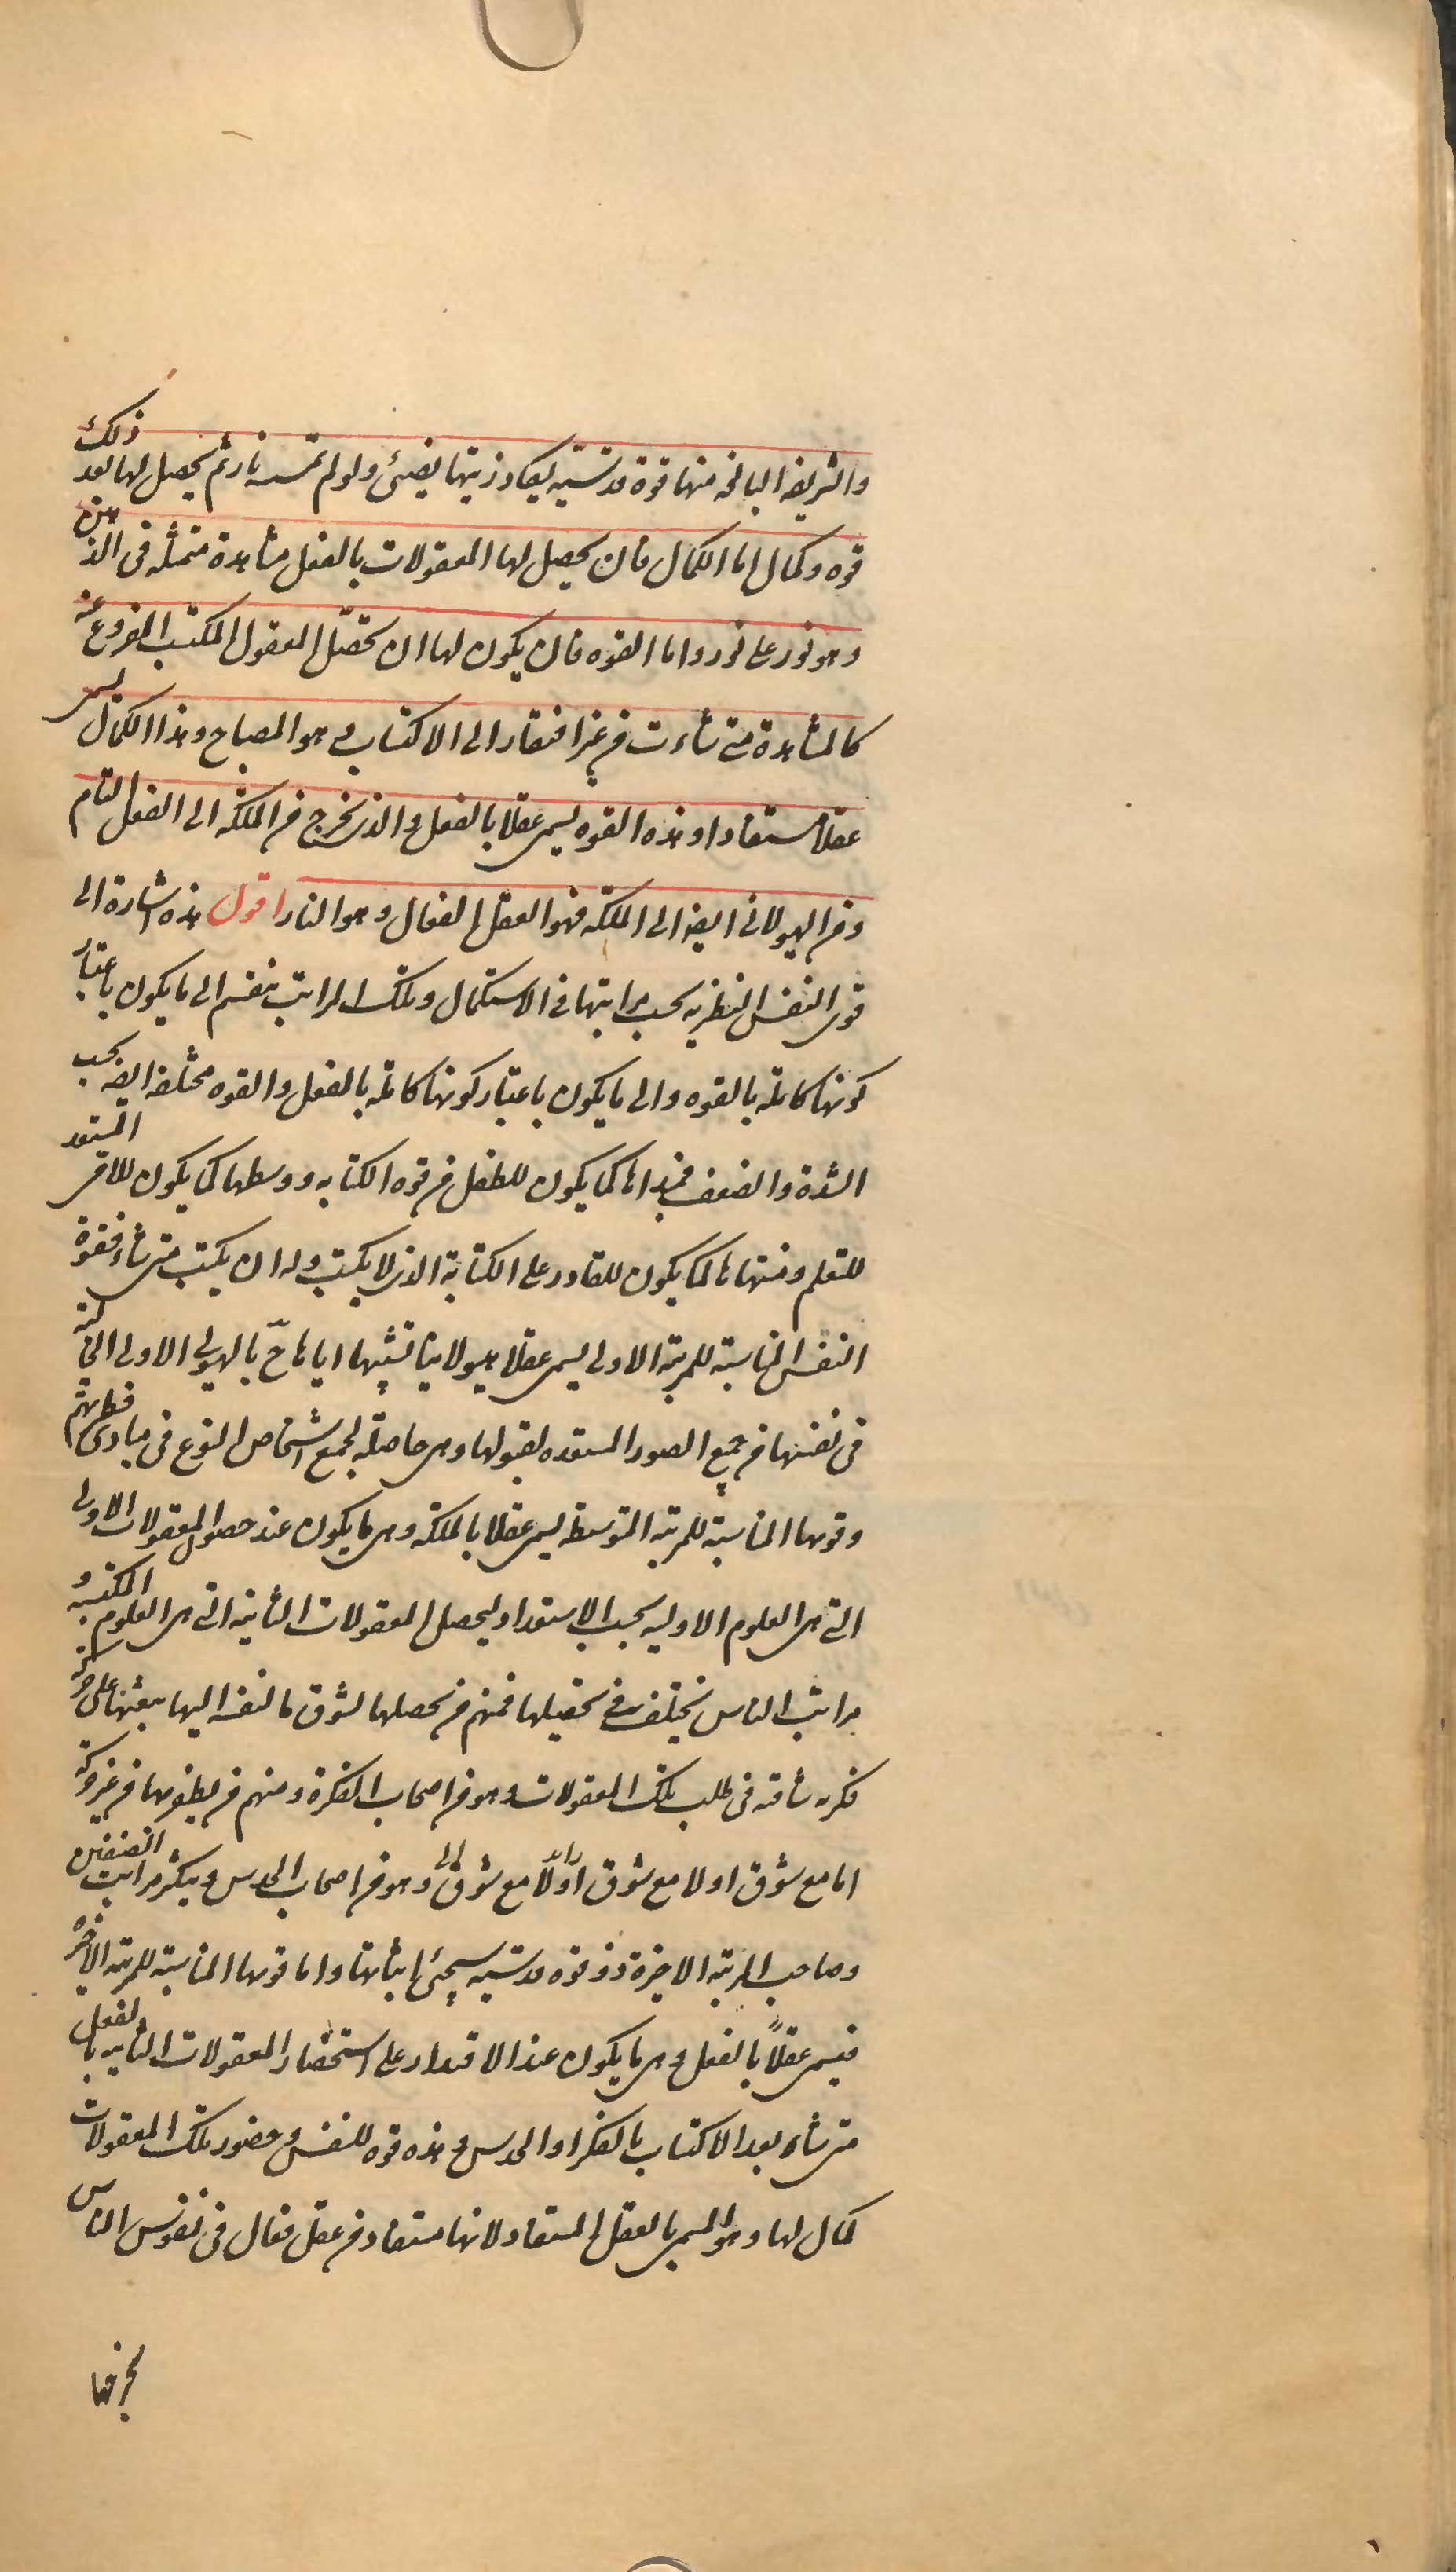 والشريفه البالغه منها قوة قدسيّه يكاد زيتها يضئ ولو لم تمسه نار ثم يحصل لها بعد ذلك
قوه وكمال اما الكمال فان يحصل لها المعقولات بالفعل مشاهدة متمثله فى الذهن
وهو نور على نور واما القوه فان يكون لها ان تحصّل المعقول المكتسب المفروغ عنه
كالمشاهدة متى شاءت من غير افتقار الى الاكتساب وهو المصباح وهذا الكمال يسمى
عقلا مستفادا وهذه القوه يسمى عقلا بالفعل والذى يخرج من الملكه الى الفعل التام
ومن الهيولانى ايضا الى الملكه فهو العقل الفعال وهو النار اقول هذه اشارة الى
قوى النفس النظريه بحسب مراتبها فى الاستكمال وتلك المراتب ينقسم الى ما يكون باعتبار
كونها كاملة بالقوه والى ما يكون باعتبار كونها كاملة بالفعل والقوه مختلفه ايضا بحسب
الشدة والضعف فمبداها كما يكون للطفل من قوه الكتابه ووسطها كما يكون للامى المستعد
للتعلم ومنتهاها كما يكون للقادر على الكتابة الذى لا يكتب وله ان يكتب متى شاء فقوة
النفس المناسبة للمرتبة الاولى يسمى عقلا هيولانيا تشبيها اياها ح بالهيولى الاولى الخاليه
فى نفسها من جميع الصور المستعده لقبولها وهى حاصلة لجميع اشخاص النوع فى مبادى فطرتهم
وقوتها المناسبة للمرتبه المتوسطه يسمى عقلا بالملكه وهى ما يكون عند حصول المعقولات الاولى
التى هى العلوم الاوليه بحسب الاستعداد ليحصل المعقولات الثانية التى هى العلوم المكتسبه و
مراتب الناس يختلف فى تحصيلها فمنهم من يحصلها لشوق ما لنفسه اليها يبعثها على حركة
فكريه شاقه فى طلب تلك المعقولات وهو من اصحاب الفكرة ومنهم من يظفر بها من غير حركة
اما مع شوق اولا مع شوق او لا مع شوق وهو من اصحاب الحدس ويتكثر مراتب الصنفين
وصاحب المرتبة الاخيرة ذو قوه قدسيه سيجئ اثباتها واما قوتها المناسبة للمرتبه الاخيره
فيسمى عقلاً بالفعل وهى ما يكون عند الاقتدار على استحضار المعقولات الثانيه بالفعل
متى شاء بعد الاكتساب بالفكر او الحدس وهذه قوه للنفس وحضور تلك المعقولات
كمال لها وهو المسمى بالعقل المستفاد لانها مستفاد من عقل فعال فى نفوس الناس
يخرجها